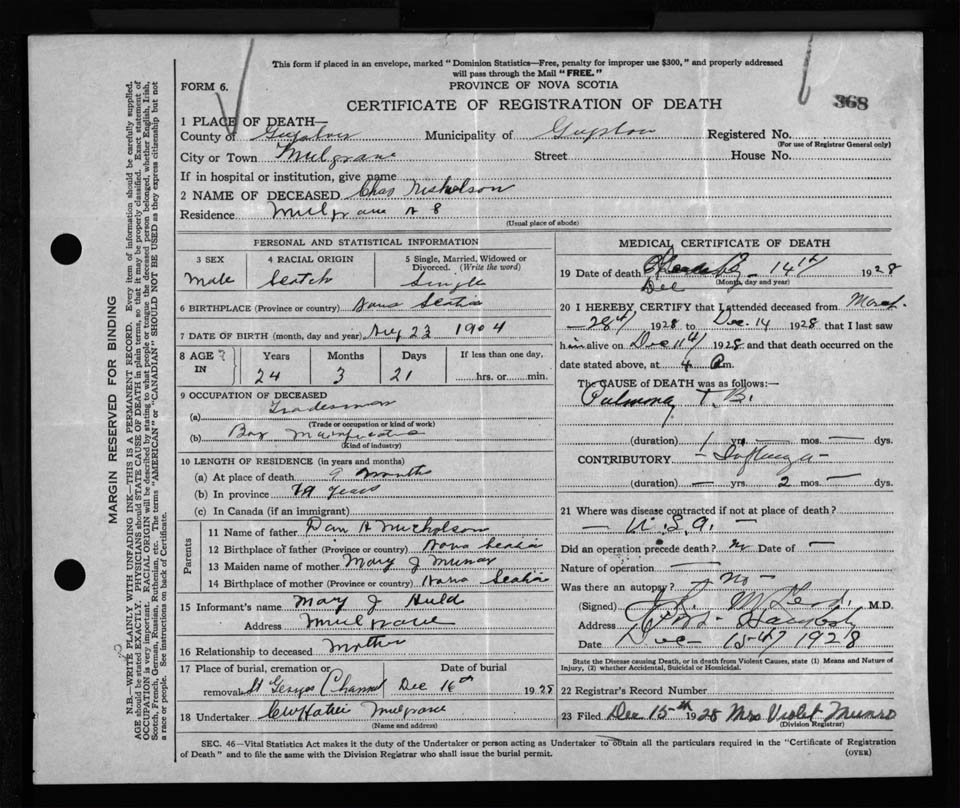 This form if placed in an envelope, marked "Dominion Statistics—Free, penalty for improper use $300," and properly addressed
will pass through the Mail "FREE."
FORM 6.
PROVINCE OF NOVA SCOTIA
368
CERTIFICATE OF REGISTRATION OF DEATH
1 PLACE OF DEATH—
County of Municipality of Registered No.
(For use of Registrar General only)
City or Town Mulgrave Street House No.
If in hospital or institution, give name
2 NAME OF DECEASED Chas Nicholson
Residence Mulgrave N S
(Usual place of abode)
PERSONAL AND STATISTICAL INFORMATION
3 SEX 4 RACIAL ORIGIN 5 Single, Married, Widowed or
Divorced. (Write the word)
Male Scotch Single
6 BIRTHPLACE (Province or Country) Nova Scotia
7 DATE OF BIRTH (month, day and year) Aug 23 1904
8 AGE IN Years Months Days If less than one day,
24 3 21 hrs. or min.
9 OCCUPATION OF DECEASED
(a) Tradesman
(Trade or occupation or kind of work)
(b) Box
(Kind of industry)
10 LENGTH OF RESIDENCE (in years and months)
(a) At place of death 9 months
(b) In province years
(c) In Canada (if an immigrant)
Parents
11 Name of father Dan A Nicholson
12 Birthplace of father (Province or country) Nova Scotia
13 Maiden name of mother Mary J Munro
14 Birthplace of mother (Province or country) Nova Scotia
15 Informant's name Mary J Auld
Address Mulgrave
16 Relationship to deceased Mother
17 Place of burial, cremation or Date of burial
removal St Georges Channel Dec 16th 1928
18 Undertaker Mulgrave
(Name and address)
MEDICAL CERTIFICATE OF DEATH
19 Date of death 14th 1928
Dec (Month, day and year)
20 I HEREBY CERTIFY that I attended deceased from March
28th 1928 to Dec. 14 1928 that I last saw
him alive on Dec 11th 1928 and that death occurred on the
date stated above, at 4 m.
The CAUSE OF DEATH was as follows:—
Pulmonary T. B.
(duration) 1 yrs — mos. — dys.
CONTRIBUTORY — Influenza —
(duration) — yrs. 2 mos. — dys.
21 Where was disease contracted if not at place of death?
— U.S.A. —
Did an operation precede death? no Date of —
Nature of operation —
Was there an autopsy? — no —
(Signed) M.D.
Address Pt. Hawkesbury
Date Dec — 15th 1928
State the Disease causing Death, or in death from Violent Causes, state (1) Means and Nature of
Injury, (2) whether Accidental, Suicidal or Homicidal.
22 Registrar's Record Number
23 Filed Dec 15th 1928 Mrs Violet Munro
(Division Registrar)
SEC. 46—Vital Statistics Act makes it the duty of the Undertaker or person acting as Undertaker to obtain all the particulars required in the "Certificate of Registration
of Death" and to file the same with the Division Registrar who shall issue the burial permit. (OVER)
MARGIN RESERVED FOR BINDING
N.B.—WRITE PLAINLY WITH UNFADING INK—THIS IS A PERMANENT RECORD. Every item of information should be carefully supplied.
AGE should be stated EXACTLY. PHYSICIANS should STATE CAUSE OF DEATH in plain terms, so that it may be properly classified. Exact statement of
OCCUPATION is very important. RACIAL ORIGIN will be described by stating to what people or tongue the deceased person belonged, whether English, Irish,
Scotch, French, German, Russian, Ruthenian, etc. The terms "AMERICAN" or "CANADIAN" SHOULD NOT BE USED as they express citizenship but not
a race or people. See instructions on back of Certificate.